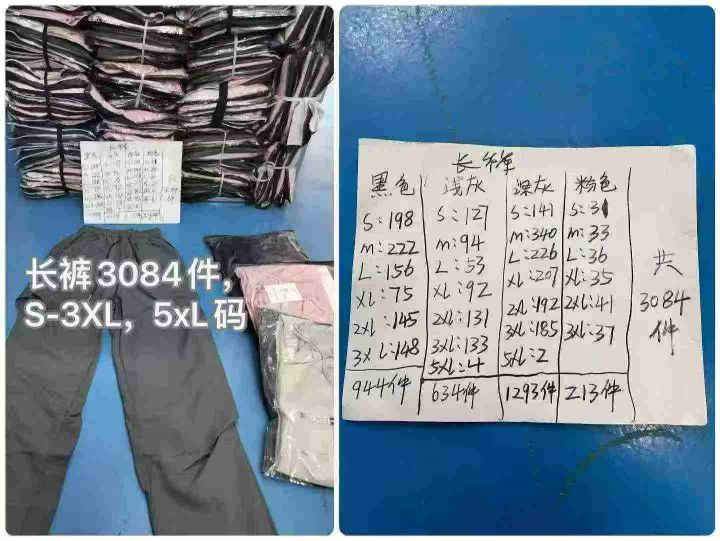 长裤3084件，
S-3XL，5xL码
长裤
黑色 浅灰 深灰 粉色
S:198 S:127 S:141 S:31
m:222 m:94 m:340 m:33
L:156 L:53 L:226 L:36
XL:75 XL:92 XL:207 XL:35
2XL:145 2XL:131 2XL:192 2XL:41
3XL:148 3XL:133 3XL:185 3XL:37
5XL:4 5XL:2
944件 634件 1293件 213件
共
3084
件